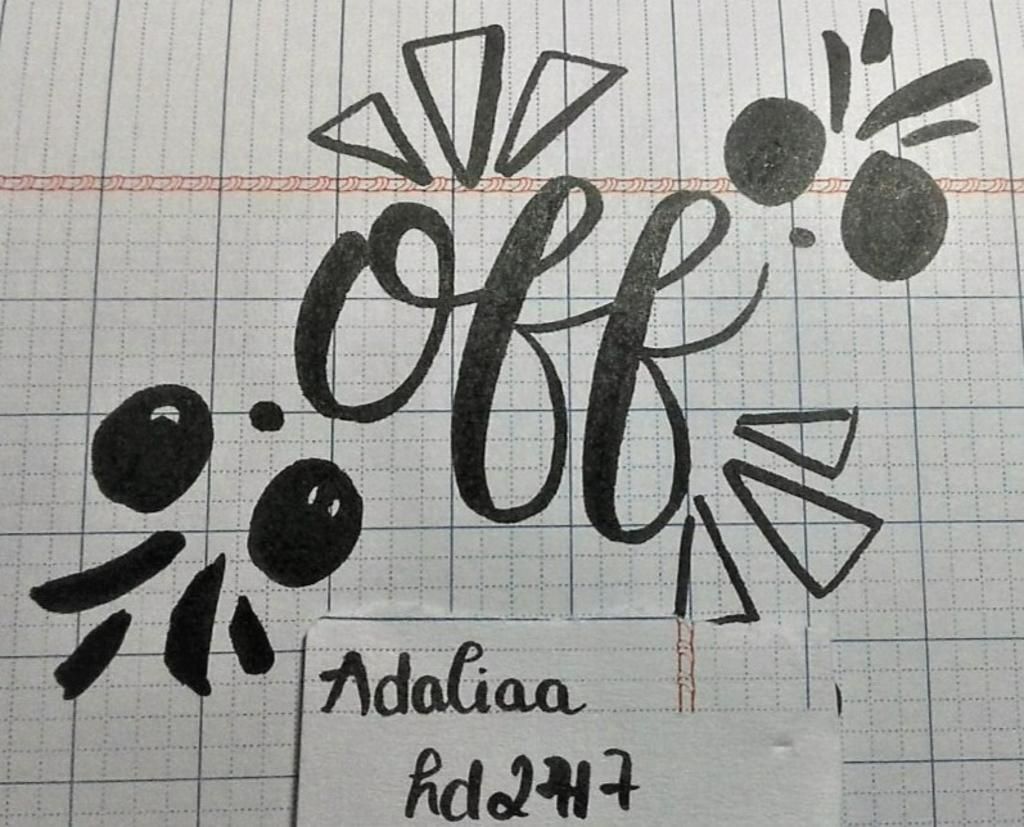 Off
Adaliaa
hd2717